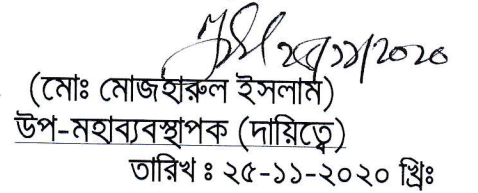 ২৫/১১/২০২০
(মোঃ মোজহারুল ইসলাম)
উপ-মহাব্যবস্থাপক (দায়িত্বে)
তারিখ ঃ ২৫-১১-২০২০ খ্রিঃ